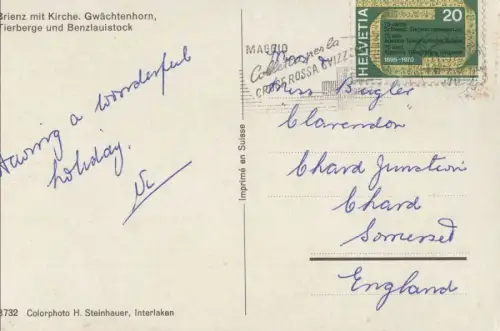 Brienz mit Kirche. Gwächtenhorn,
Tierberge und Benzlauistock
Having a wonderful
holiday.
Imprimé en Suisse
MAGGIO
Colletta per la
CROCE ROSSA SVIZZ
HELVETIA
20
1895-1970
Miss Bugler
"Clarendon"
Chard Junction
Chard
Somerset
England
8732 Colorphoto H. Steinhauer, Interlaken